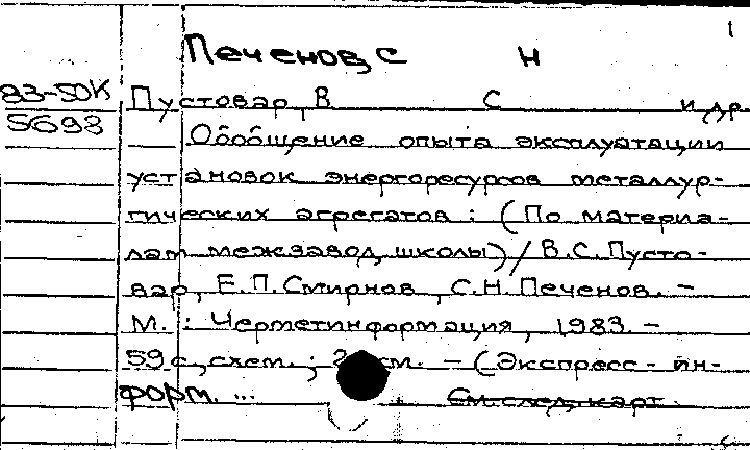 1
Печенов, С Н
83-50К
5693
Пустовар, В С и др
Обобщение опыта эксплуатации
установок энергоресурсов металлур-
гических агрегатов : (По материа-
лам межзавод. школы) / В.С.Пусто-
вар, Е.П.Смирнов, С.Н.Печенов. -
М. : Черметинформация, 1983. -
59 с., схем. ; см. - (Экспресс-ин-
форм. ...
См.след.карт.